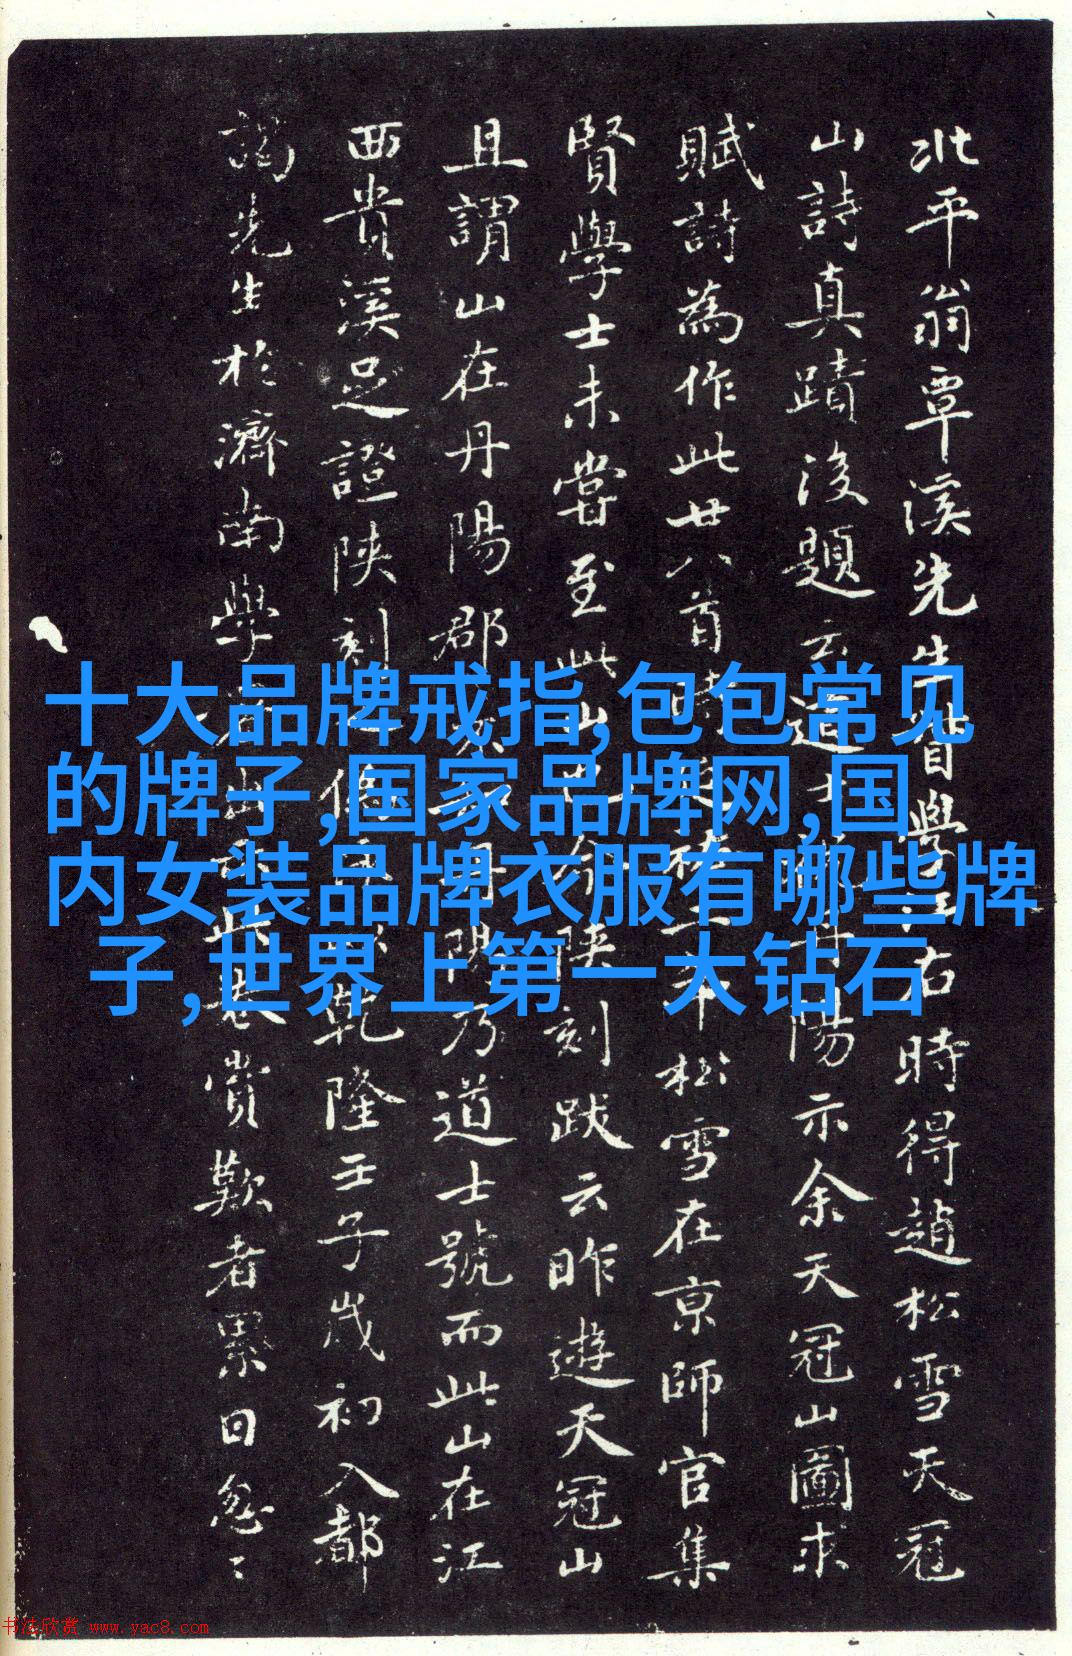 北平翁覃溪先生督學江右時得趙松雪天冠
山詩真蹟後題云道士丹陽示余天冠山圖求
賦詩為作此廿八首時延祐二年松雪在京師官集
賢學士未嘗至此山也今陝刻跋云昨遊天冠山
且謂山在丹陽郡丹陽乃道士號而此山在江
西貴溪足證陝刻之偽乾隆壬子歲初入都
謁先生於濟南學出此卷賞歎者累日忽〻
十大品牌戒指,包包常见
的牌子,国家品牌网,国
内女装品牌衣服有哪些牌
子,世界上第一大钻石
书法欣赏 www.yac8.com